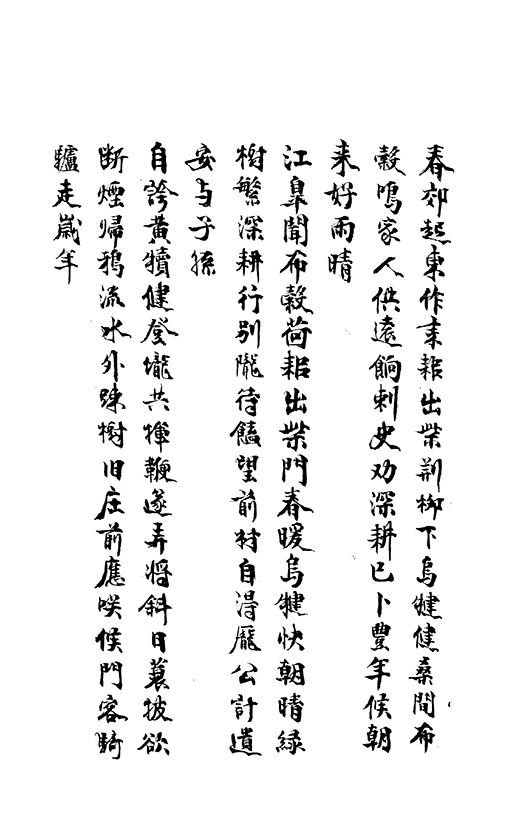 春郊起東作耒耜出柴荆柳下烏犍健桑間布
穀鳴家人供遠餉刺史劝深耕已卜豐年候朝
来好雨晴
江臯聞布穀荷耜出柴門春暖烏犍快朝晴緑
樹繁深耕行别隴待饁望前村自得龐公計遺
安与子孫
自誇黄犢健登壠共揮鞭遂弄將斜日蓑披欲
断煙歸鴉流水外踈樹旧庄前應咲候門客騎
驢走歲年